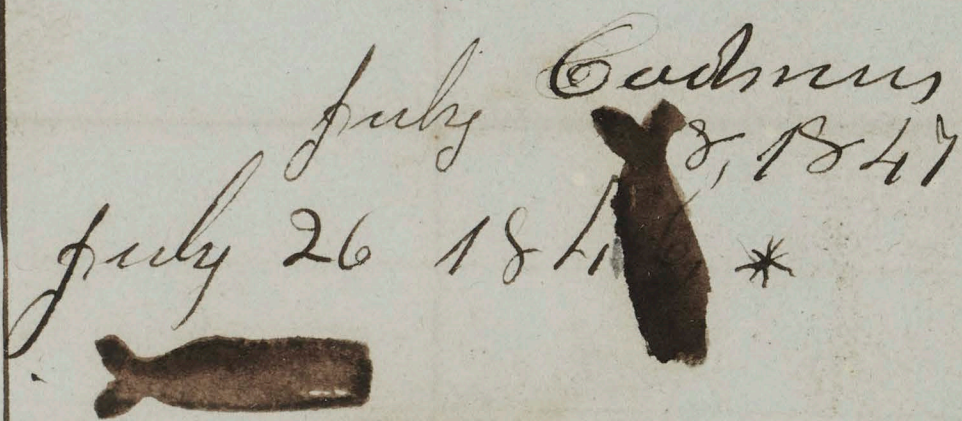 Cadmus
July 8, 1847
July 26 1846, *